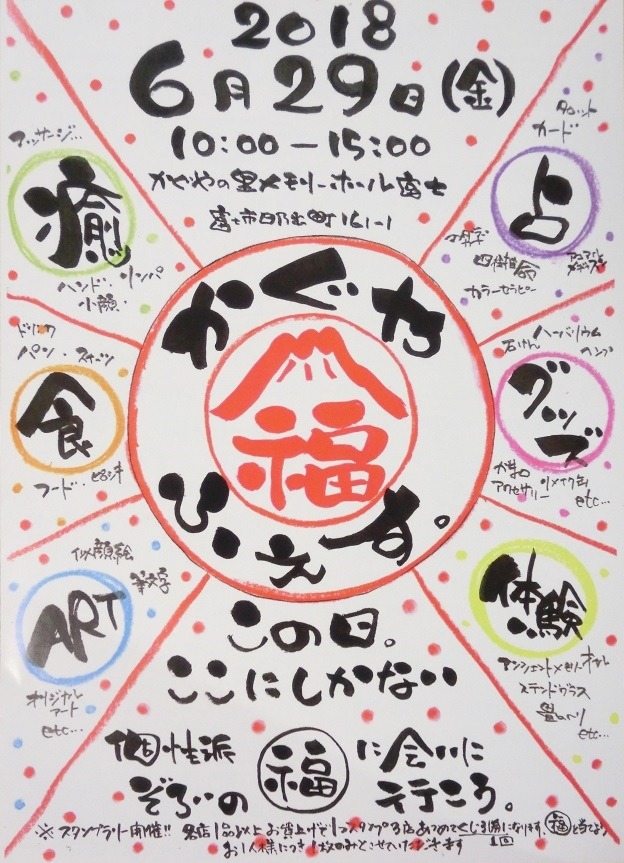 2018
6月29日(金)
10:00-15:00
かぐやの里メモリーホール富士
富士市日乃出町161-1
マッサージ…
癒
ハンド・リンパ
小顔
タロット
カード
占
マヤ
四柱推命
カラーセラピー
ドリンク
パン・スイーツ
食
フード
ハーバリウム
石けん
グッズ
アクセサリー
リメイク缶
etc…
かぐや
福
ひぇす。
似顔絵
筆文字
ART
オリジナル
アート
etc…
体験
アンシェントメモリーオイル
ステンドグラス
畳へり
etc…
この日。
ここにしかない
個性派
ぞろいの
福
に会いに
行こう。
※スタンプラリー開催!! 各店1品以上お買上げで1スタンプ 3店あつめてくじ引1回になります。福を当てよう
お1人様につき1枚のみとさせていただきます